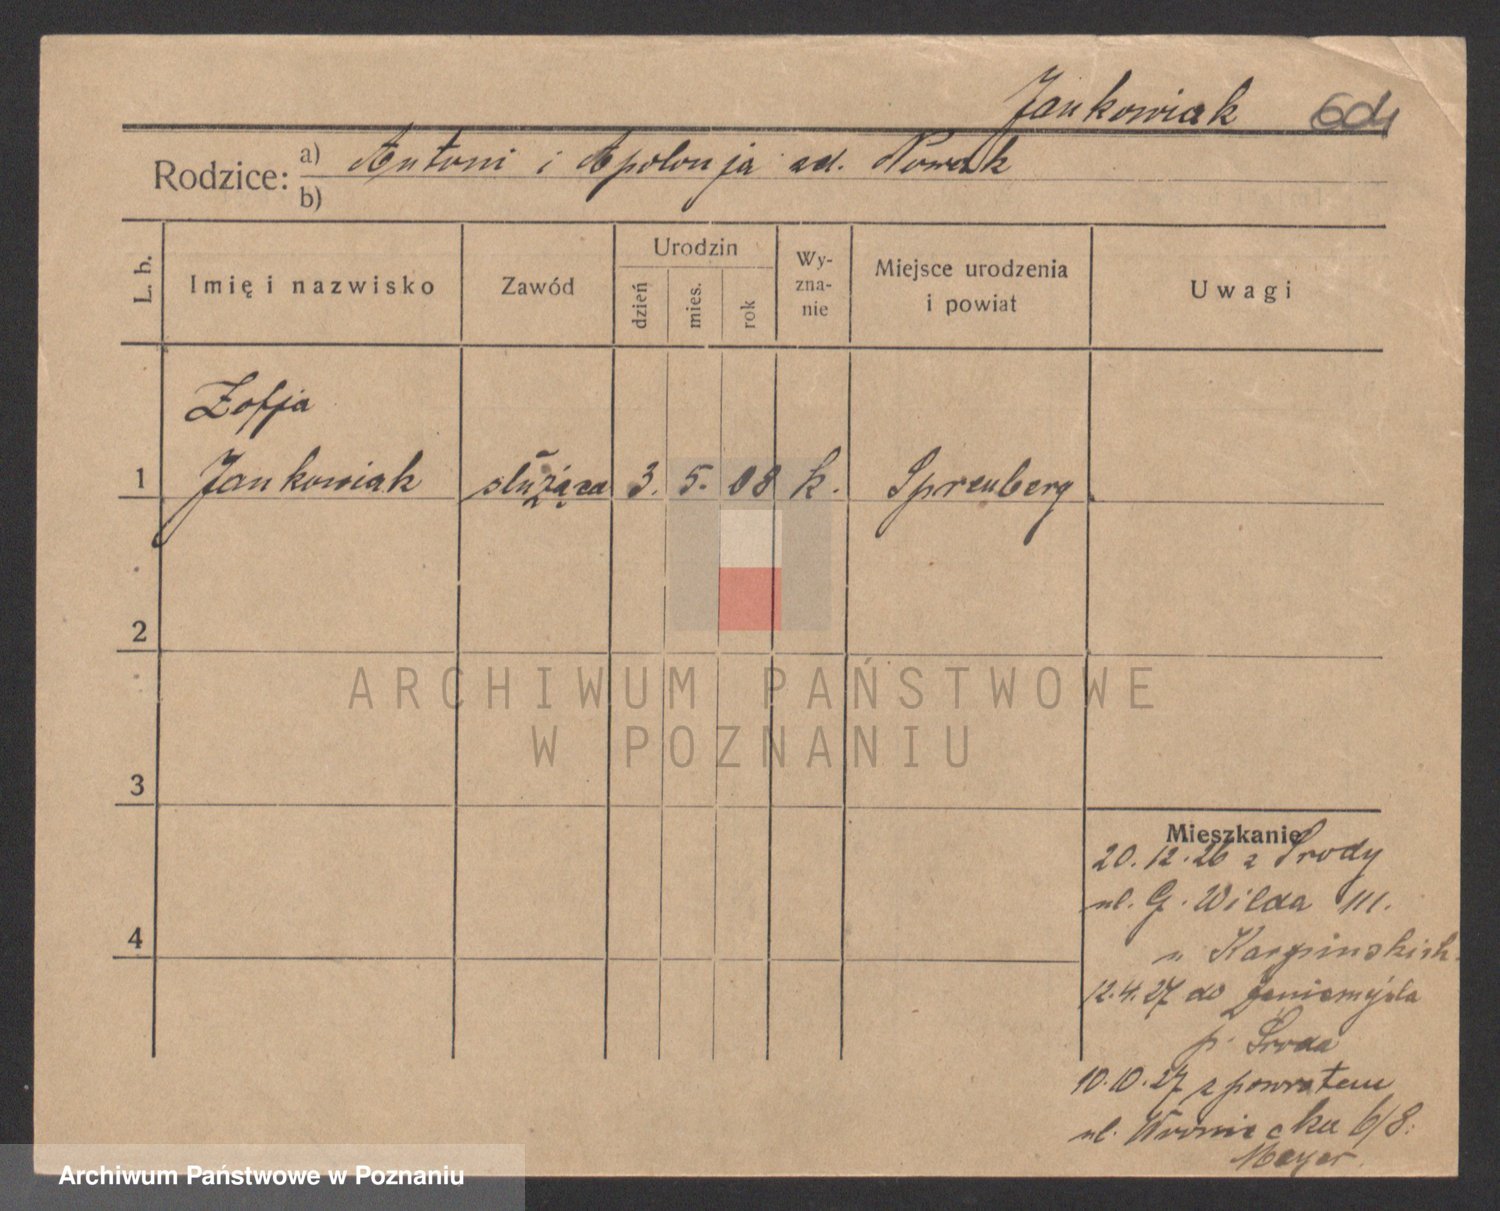 Jankowiak 604
Rodzice: a) Antoni i Apolonja zd. Nowak
b)
L. b.
Imię i nazwisko
Zawód
Urodzin
dzień
mies.
rok
Wy-
zna-
nie
Miejsce urodzenia
i powiat
Uwagi
Zofja
1 Jankowiak służąca 3. 5. 08 k. Spremberg
2
3
4
Mieszkanie
20.12.26 z Środy
ul. G. Wilda 111.
u Karpinskich.
12.4.27 do Zaniemyśla
p. Środa
10.10.27 z powrotem
ul. Wroniecka 6/8.
Mayer.
ARCHIWUM PAŃSTWOWE
W POZNANIU
Archiwum Państwowe w Poznaniu